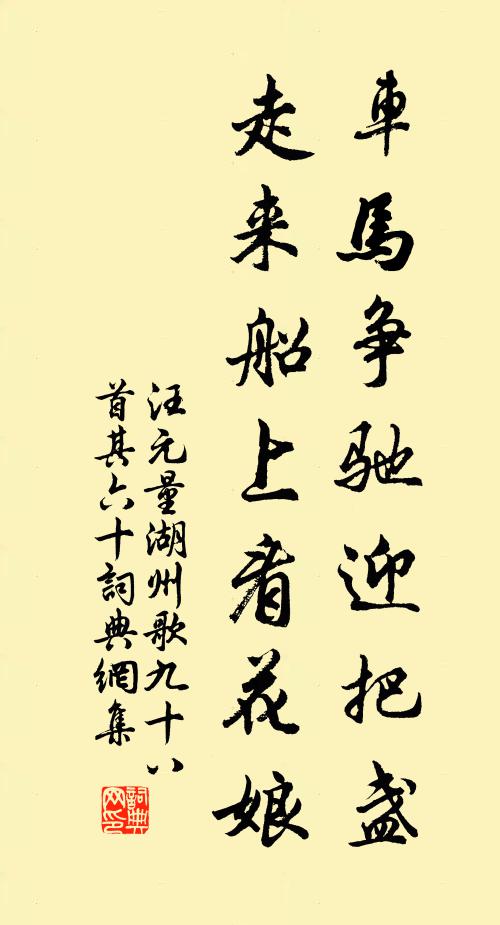 車馬争馳迎把盏
走来船上看花娘
汪元量湖州歌九十八
首其六十詞典網集
詞典
网印